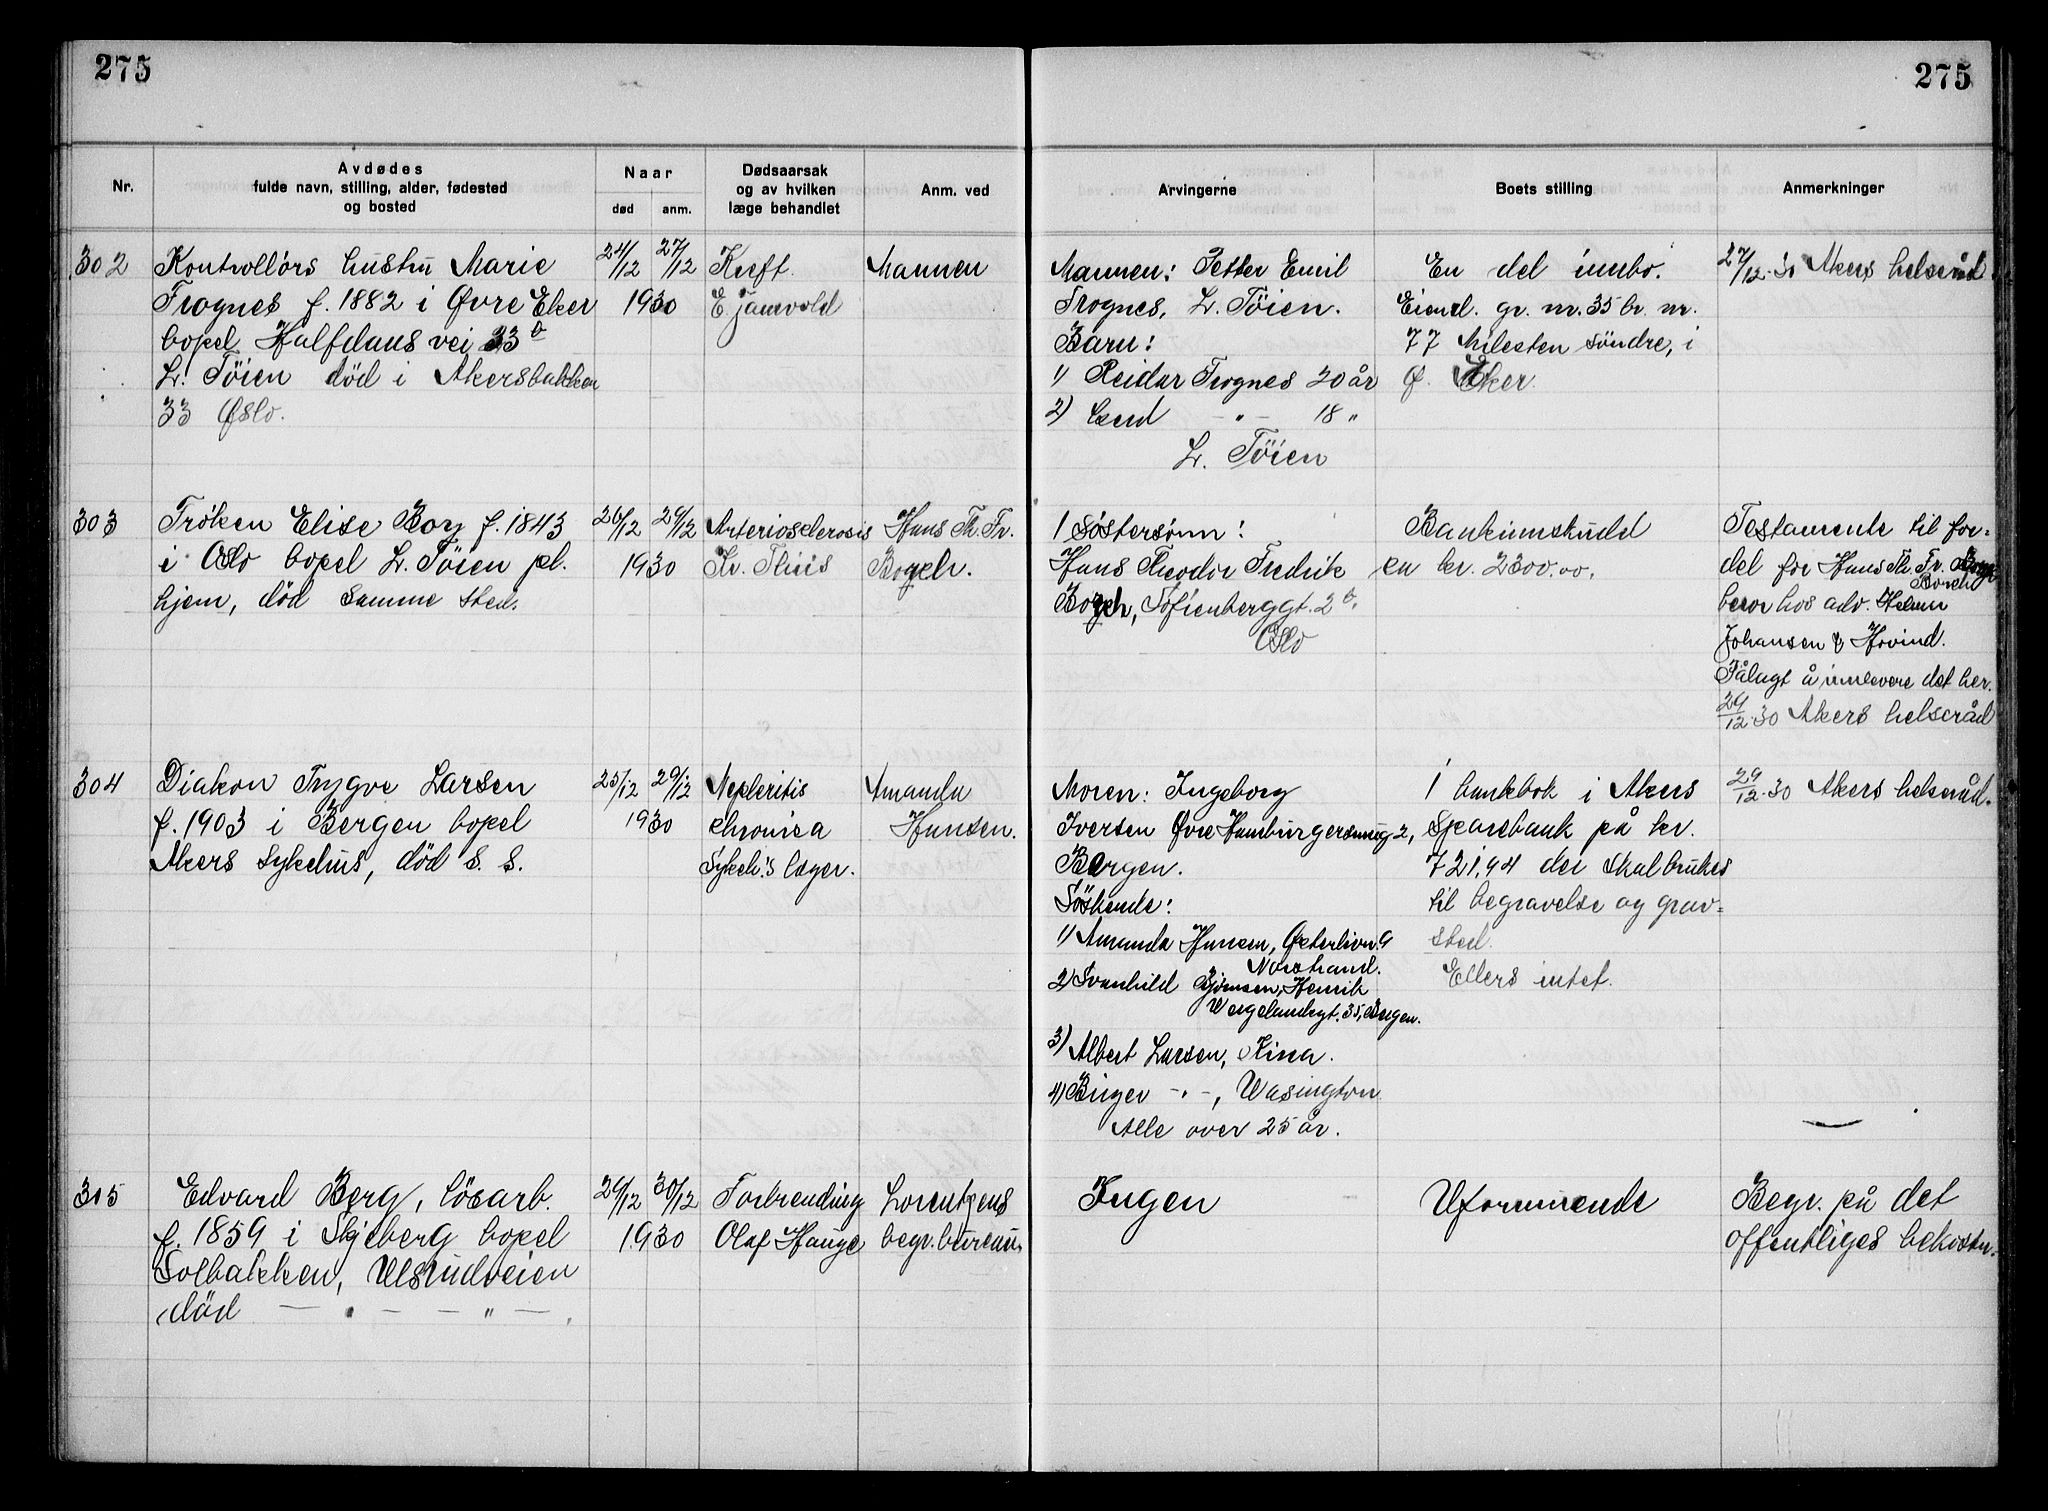 275
275
Nr.
Avdødes
fulde navn, stilling, alder, fødested
og bosted
Naar
død
anm.
Dødsaarsak
og av hvilken
læge behandlet
Anm. ved
Arvingerne
Boets stilling
Anmerkninger
302
Kontrollörs hustru Marie
Frognes f. 1882 i Øvre Eker
bopel Halfdans vei 33 b
L. Töien död i Akersbakken
33 Oslo.
24/12 27/12
1930
Kreft.
E. Jansvold
Mannen
Mannen: Petter Emil
Frognes, L. Töien.
Barn:
1) Reidar Frognes 20 år
2) Gerd - " - 18 "
L. Töien
En del innbo.
Eiend. gr. nr. 35 br. nr.
77 Milesten söndre, i
Ø. Eker.
27/12.30 Akers helseråd
303
Fröken Elise Boy f. 1843
i Oslo bopel L. Töien pl.
hjem, död samme sted.
26/12 29/12
1930
Arteriosclerosis
Kr. Thiis
Hans Th. Fr.
Borch.
1 Söstersönn:
Hans Theodor Fredrik
Borch, Sofienberggt. 2 b.
Oslo
Bankinnskudd
en kr. 2300.00.
Testamente til for=
del for Hans Th. Fr.
Borch
beror hos adv.
Johansen & Hovind.
Pålagt å innlevere det her.
29/12.30 Akers helseråd
304
Diakon Trygve Larsen
f. 1903 i Bergen bopel
Akers sykehus, död s. s.
25/12 29/12
1930
Nephritis
chronica
Sykeh.'s læger.
Amanda
Hansen.
Moren: Ingeborg
Iversen Øvre Hamburgersmug 2,
Bergen.
Söskende:
1) Amanda Hansen, Østerlivn. 9
Norstrand.
2) Svanhild Björnsen, Henrik
Wergelandsgt. 35, Bergen.
3) Albert Larsen, Kina.
4) Birger - " -, Wasington
Alle over 25 år.
1 bankbok i Akers
Sparebank på kr.
721,94 der skal brukes
til begravelse og grav=
sted.
Ellers intet.
29/12.30 Akers helseråd.
305
Edvard Berg, lösarb.
f. 1859 i Skjeberg bopel
Solbakken, Ulsrudveien
död — " — — " —.
29/12 30/12
1930
Forbrending
Olaf Hauge
Lorentzens
begr. bureau.
Ingen
Uformuende
Begr. på det
offentliges bekostn.